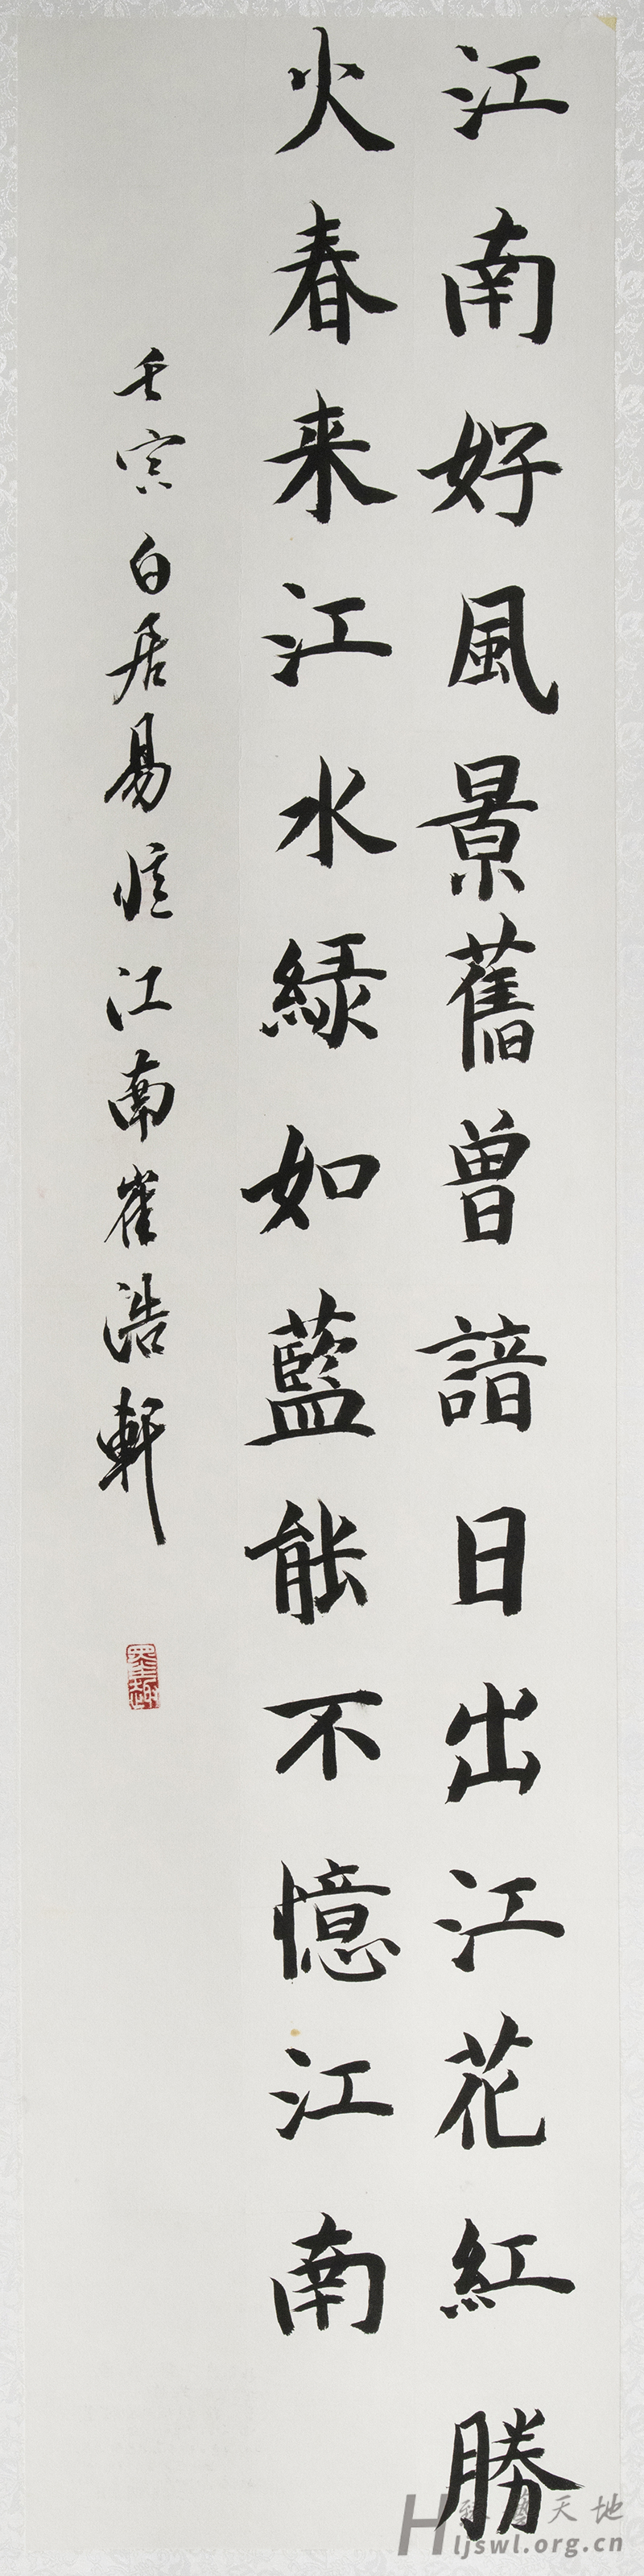 江南好風景舊曾諳日出江花紅勝
火春来江水緑如藍能不憶江南
壬寅白居易憶江南崔浩軒
天地
Hljswl.org.cn